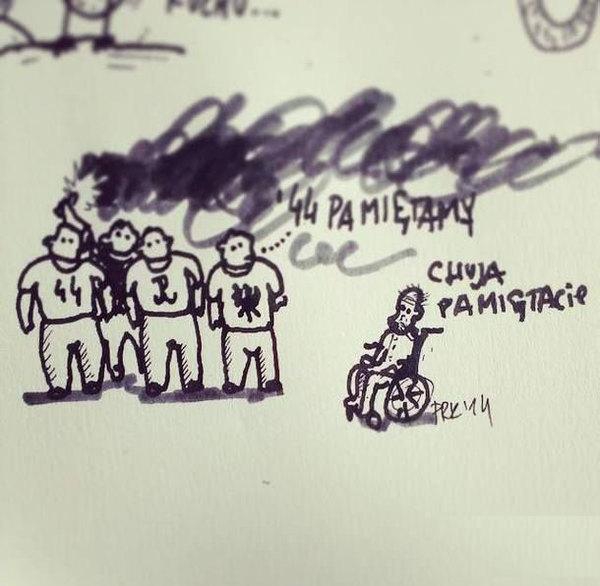 '44 PAMIĘTAMY
44
CHUJA
PAMIĘTACIE
PRK'14